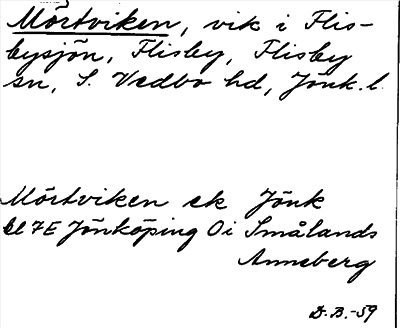 Mörtviken, vik i Flis-
bysjön, Flisby, Flisby
sn, S. Vedbo hd, Jönk. l.
Mörtviken ek Jönk
bl 7E Jönköping O i Smålands
Anneberg
D.B.-59